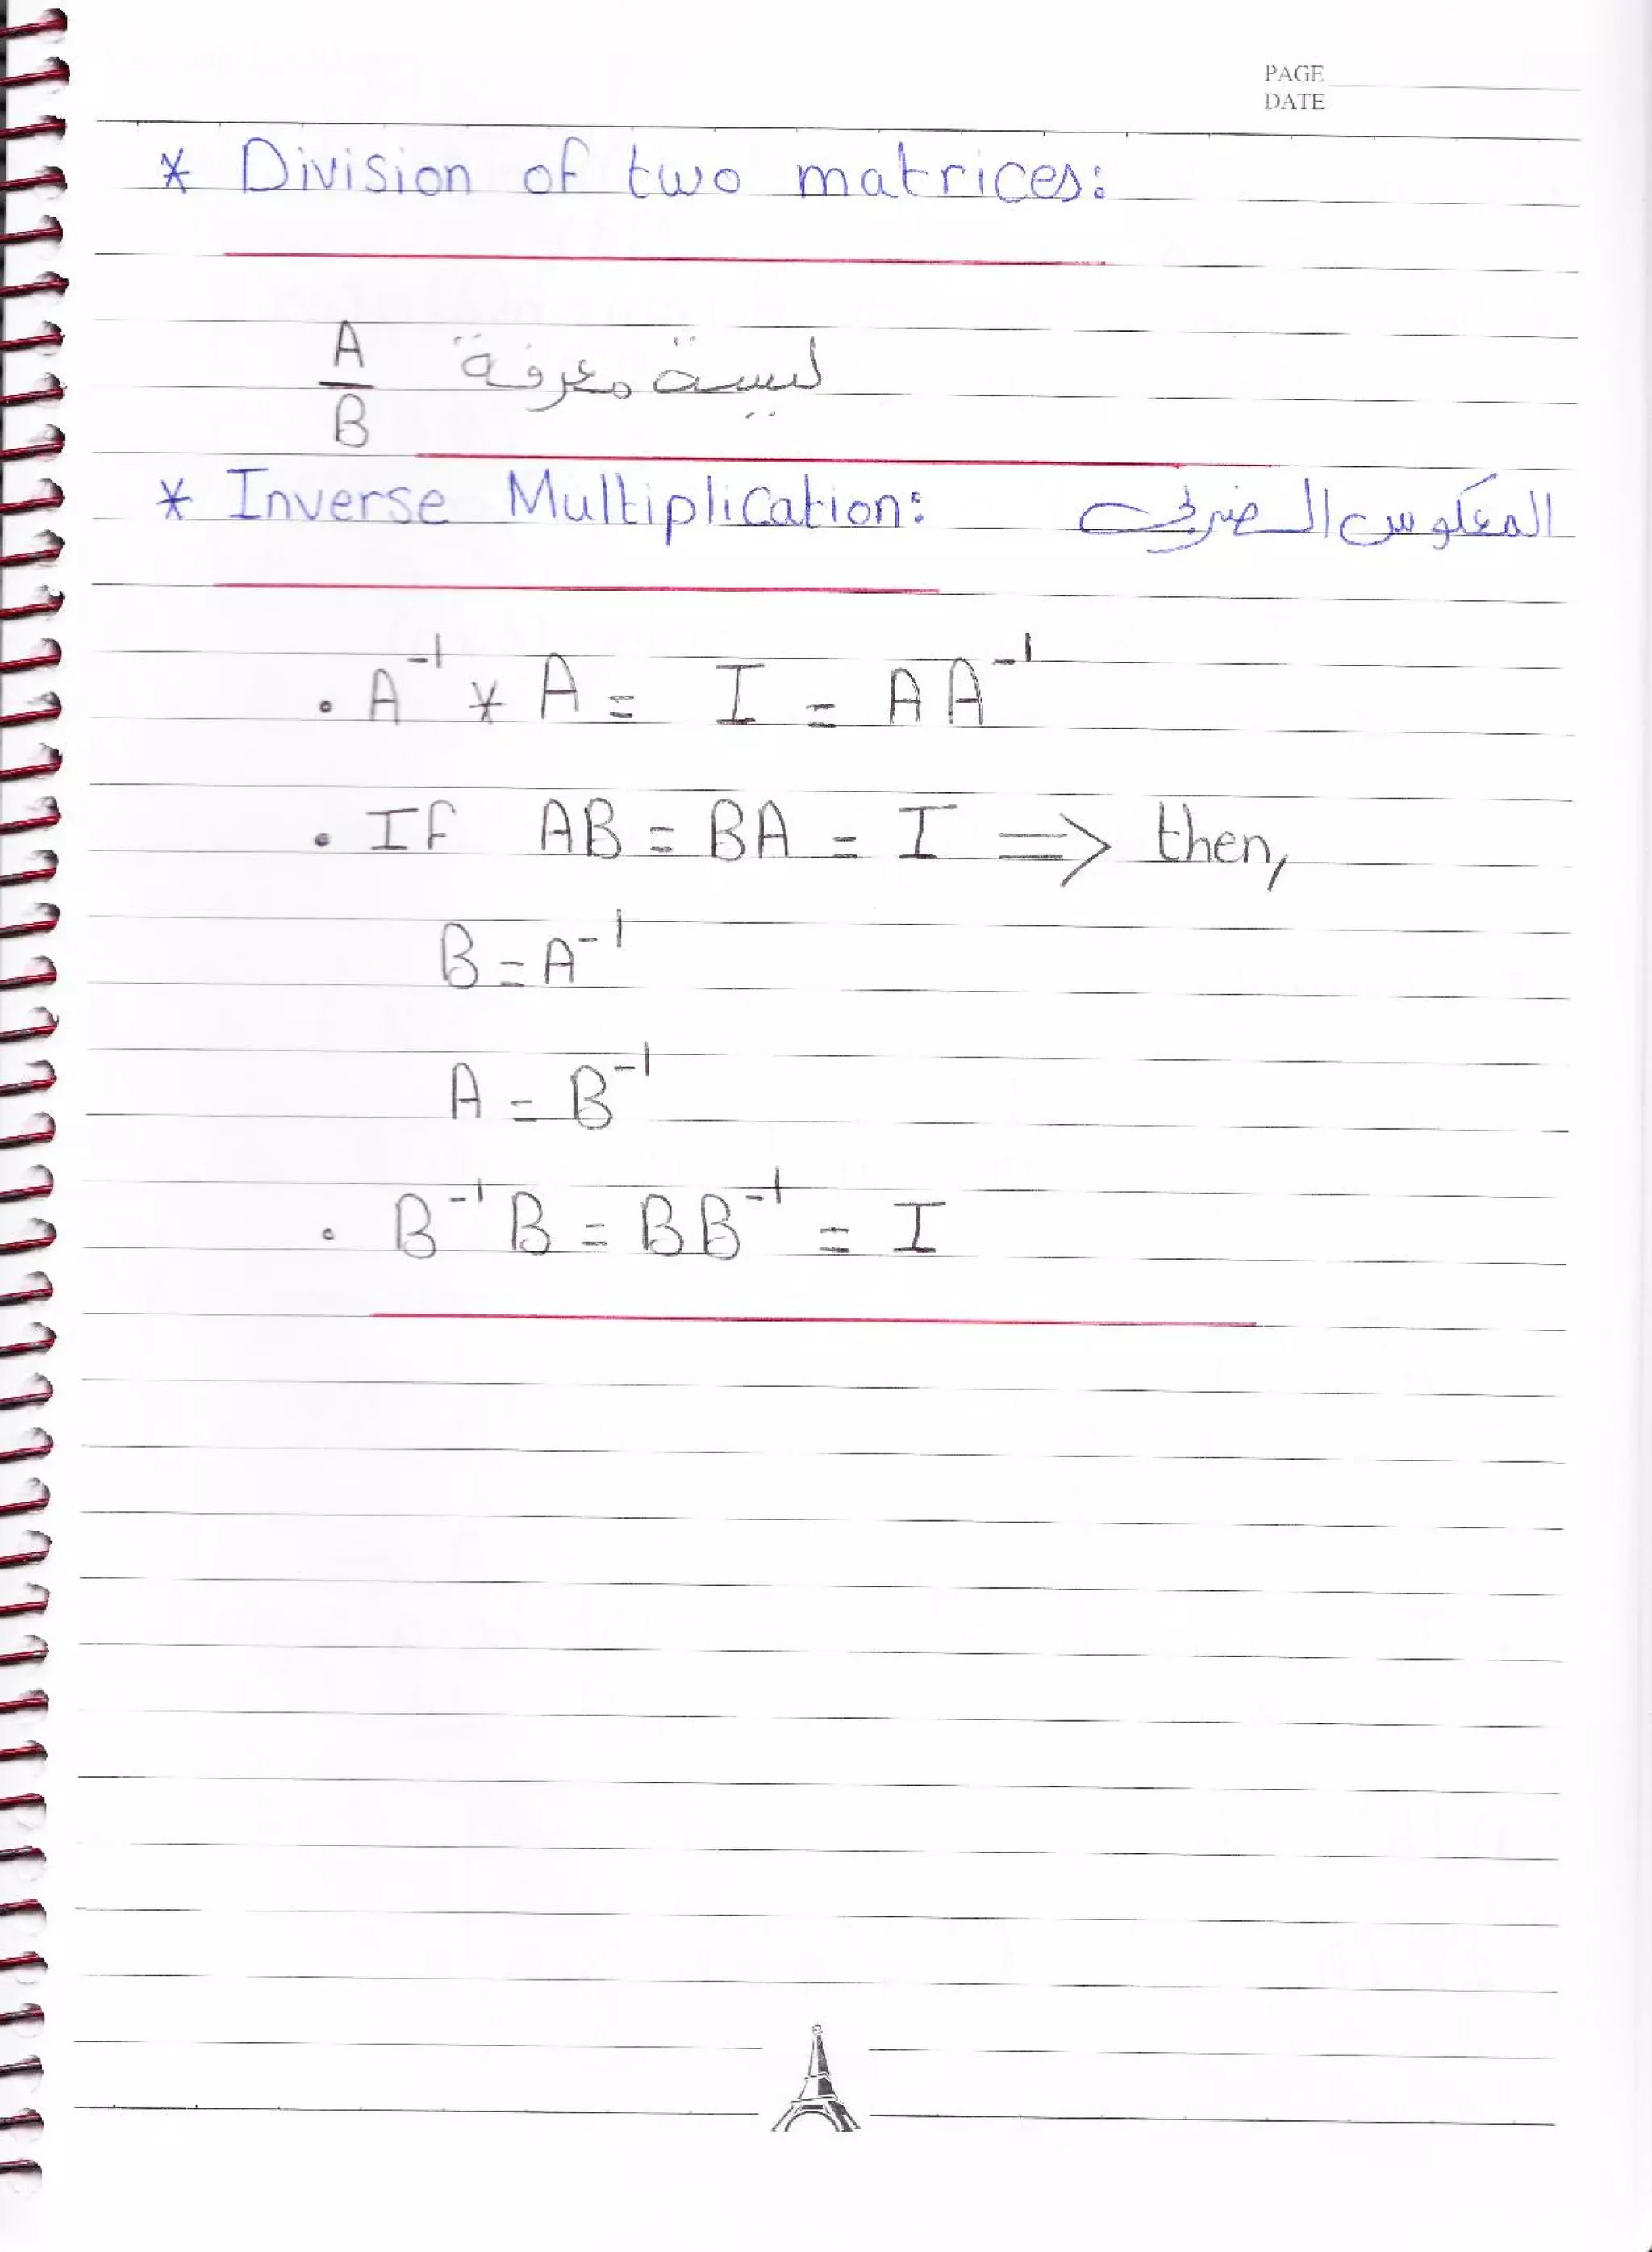 PAGE
DATE
* Division of two matrices:
A/B ليست معرفة
* Inverse Multiplication: المعكوس الضربي
• A⁻¹ * A = I = A A⁻¹
• If AB = BA = I => then,
B = A⁻¹
A = B⁻¹
• B⁻¹ B = B B⁻¹ = I